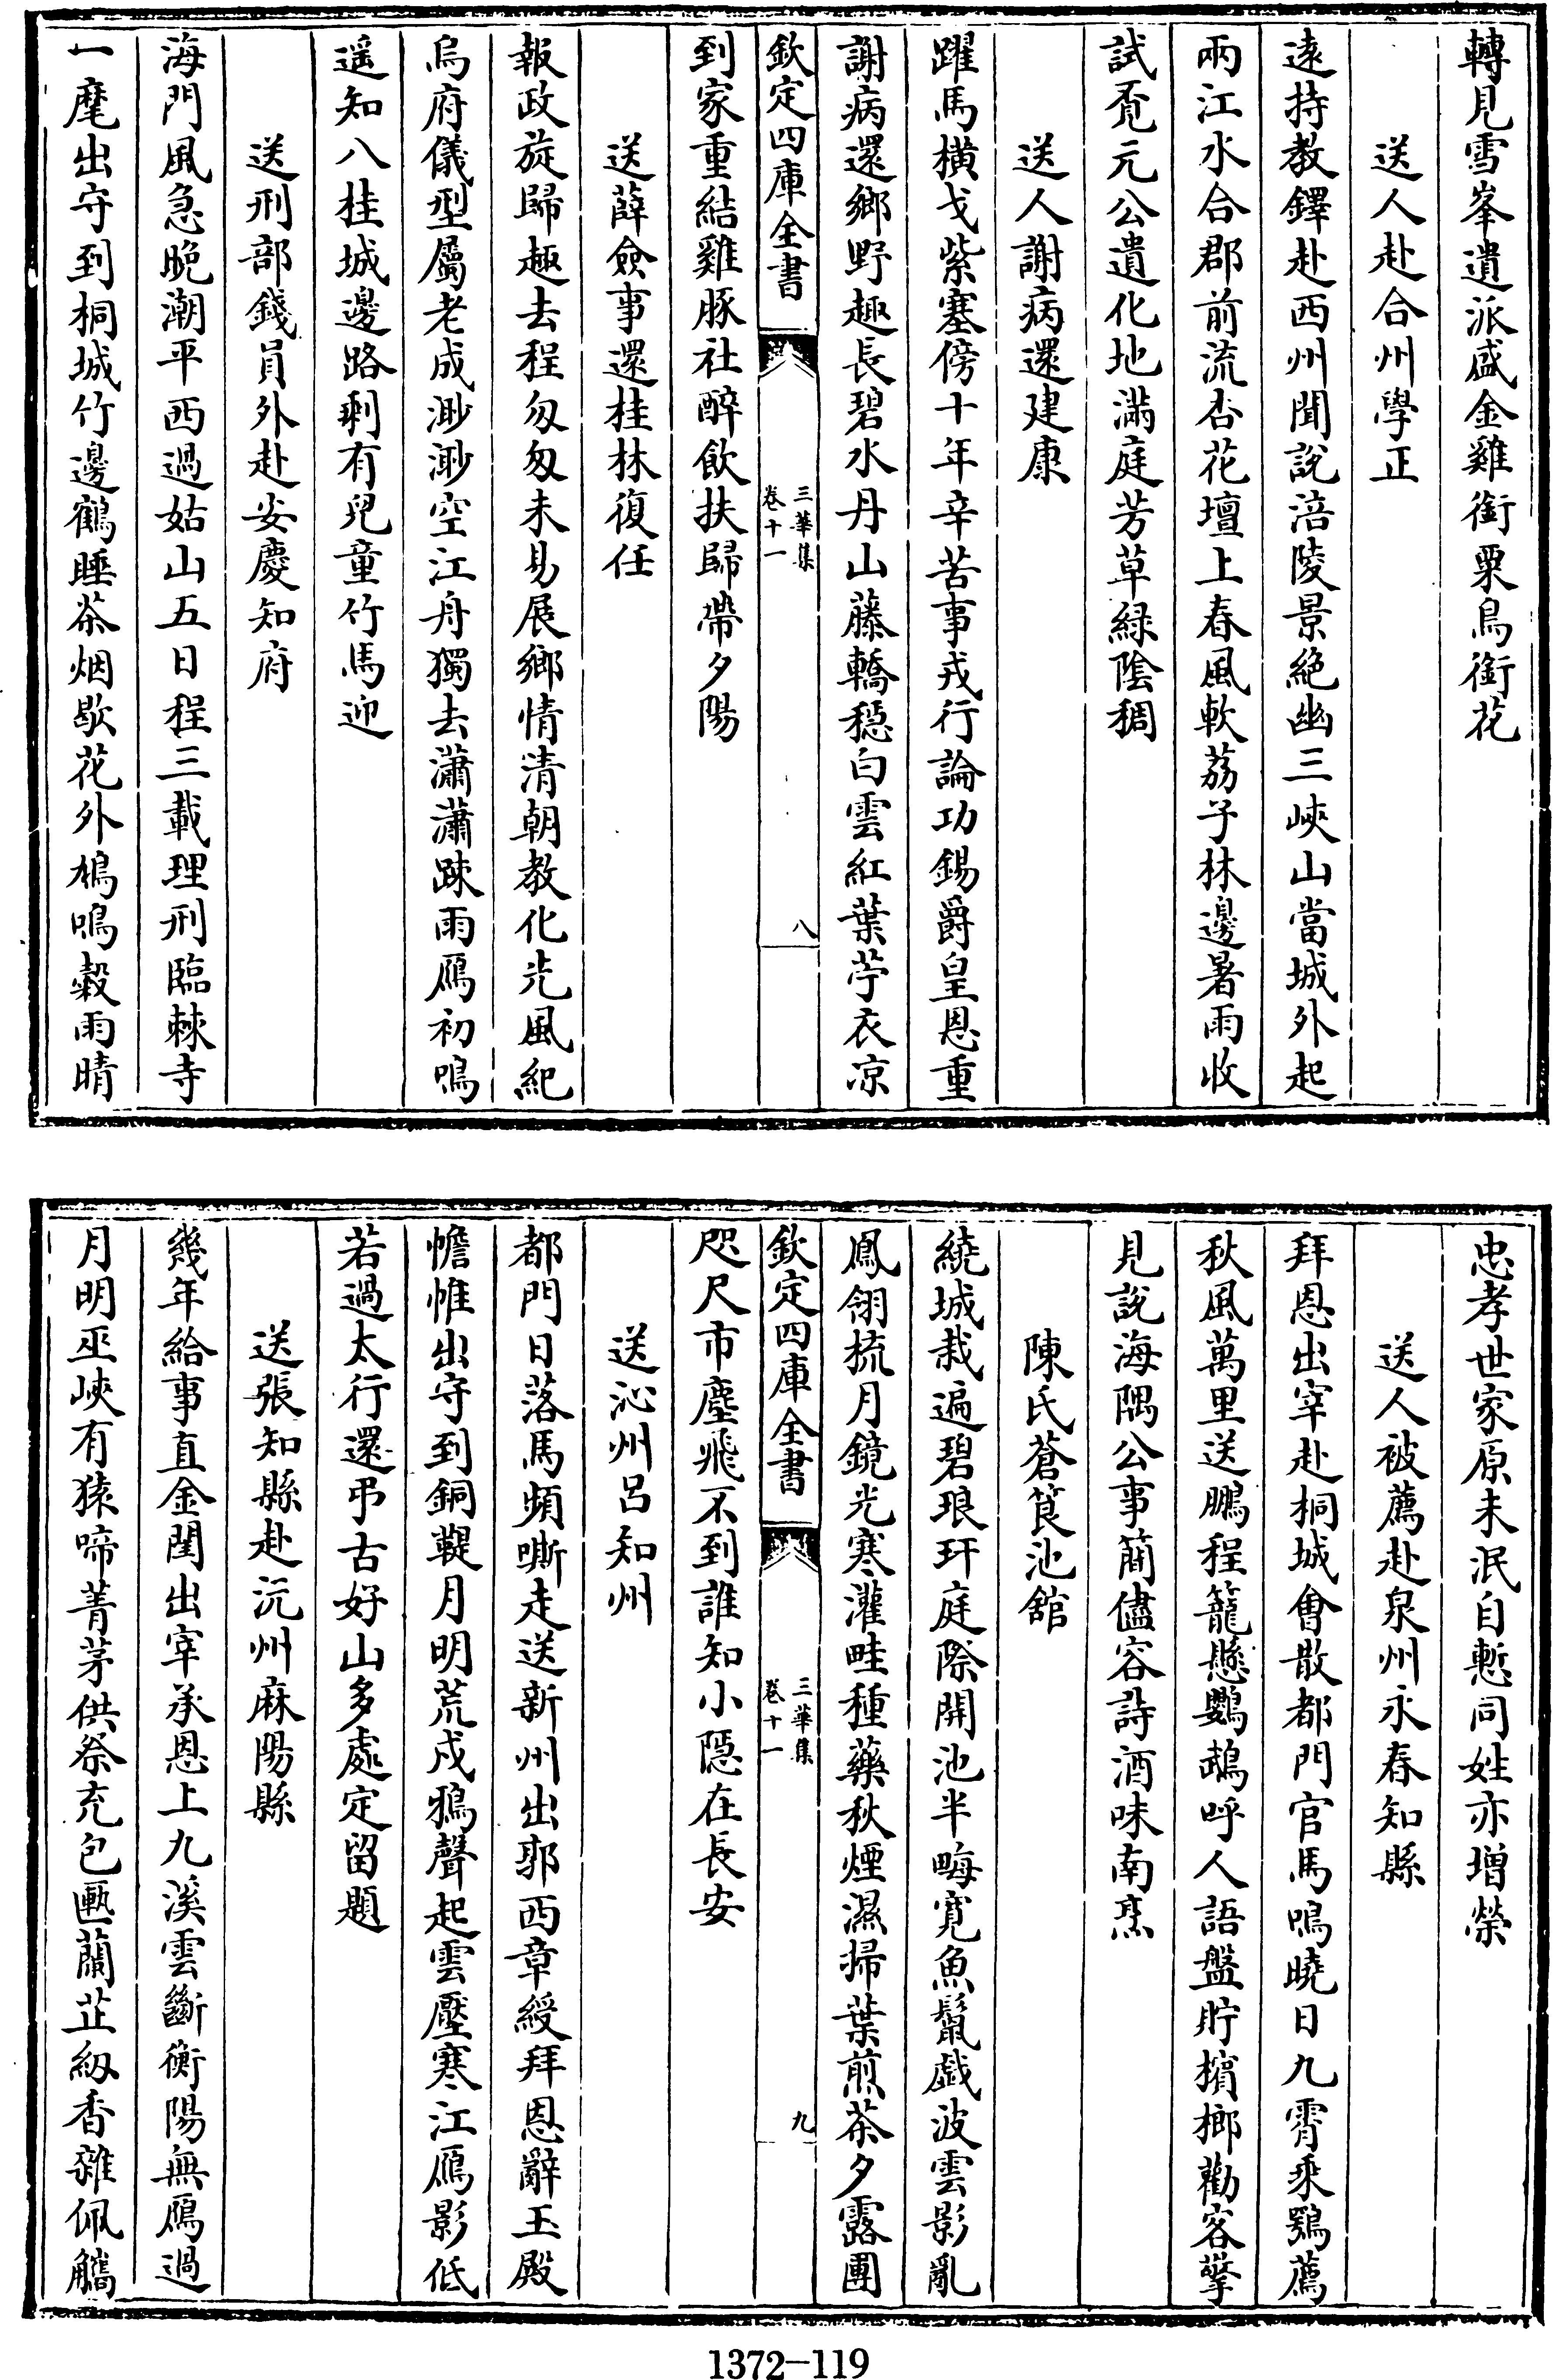 轉見雪峯遺派盛金雞銜粟鳥銜花
送人赴合州學正
遠持教鐸赴西州聞說涪陵景絶幽三峽山當城外起
兩江水合郡前流杏花壇上春風軟荔子林邊暑雨收
試覔元公遺化地滿庭芳草緑陰稠
送人謝病還建康
躍馬橫戈紫塞傍十年辛苦事戎行論功錫爵皇恩重
謝病還鄉野趣長碧水丹山藤轎穏白雲紅葉苧衣凉
欽定四庫全書
三華集
卷十一
八
到家重結雞豚社醉飲扶歸帶夕陽
送薛僉事還桂林復任
報政旋歸趣去程匆匆未易展鄉情清朝教化先風紀
烏府儀型屬老成渺渺空江舟獨去瀟瀟踈雨鴈初鳴
遥知八桂城邊路剩有兒童竹馬迎
送刑部錢員外赴安慶知府
海門風急晚潮平西過姑山五日程三載理刑臨棘寺
一麾出守到桐城竹邊鶴睡茶烟歇花外鳩鳴穀雨晴
忠孝世家原未泯自慙同姓亦增榮
送人被薦赴泉州永春知縣
拜恩出宰赴桐城會散都門官馬鳴曉日九霄乘鶚薦
秋風萬里送鵬程籠懸鸚鵡呼人語盤貯擯榔勸客擎
見說海隅公事簡儘容詩酒味南烹
陳氏蒼筤池舘
繞城栽遍碧琅玕庭際開池半畮寛魚鬣戲波雲影亂
鳳翎梳月鏡光寒灌畦種藥秋煙濕掃葉煎茶夕露團
欽定四庫全書
三華集
卷十一
九
咫尺市塵飛不到誰知小隠在長安
送沁州呂知州
都門日落馬頻嘶走送新州出郭西章綬拜恩辭玉殿
幨帷出守到銅鞮月明荒戍鴉聲起雲壓寒江鴈影低
若過太行還弔古好山多處定留題
送張知縣赴沅州麻陽縣
幾年給事直金閨出宰承恩上九溪雲斷衡陽無鴈過
月明巫峽有猿啼菁茅供祭充包匭蘭芷紉香雜佩觿
1372-119